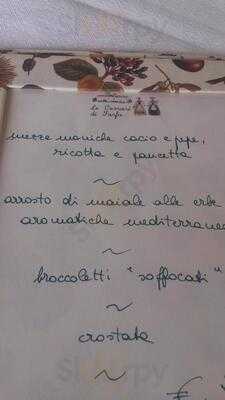 Le Comari
di Farfa
mezze maniche cacio e pepe,
ricotta e pancetta
~
arrosto di maiale alle erbe
aromatiche mediterranee
~
broccoletti "soffocati"
~
crostate
~
€